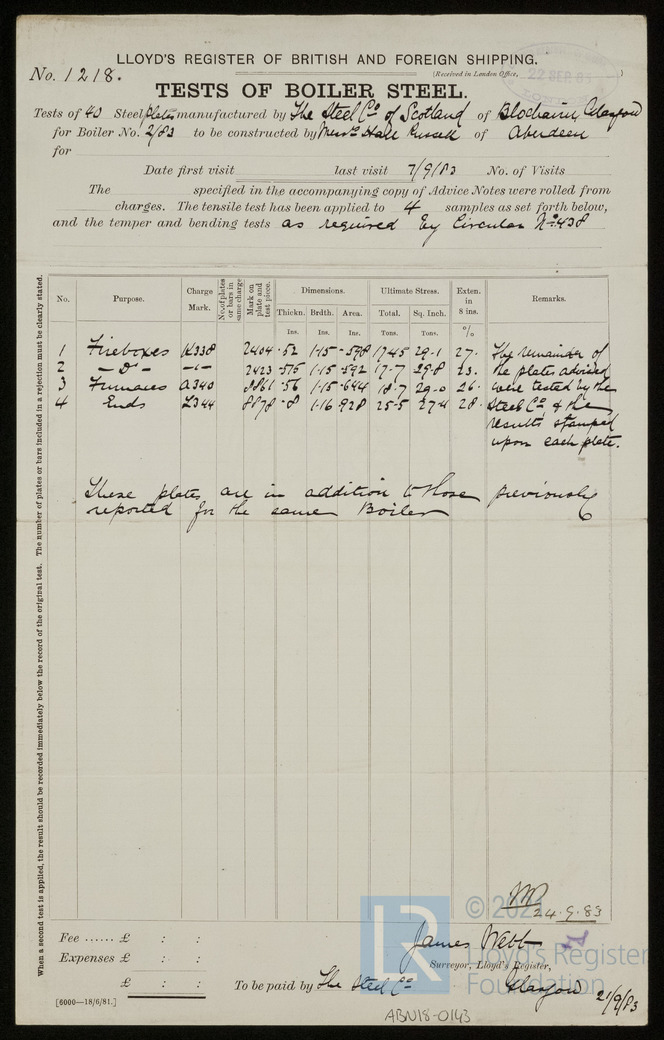 LLOYD'S REGISTER OF BRITISH AND FOREIGN SHIPPING.
No. 1218.
(Received in London Office, 22 SEP. 83)
TESTS OF BOILER STEEL.
Tests of 40 Steel plates manufactured by The Steel Co of Scotland of Blochairn, Glasgow
for Boiler No. 2/83 to be constructed by Messrs Hall Russell of Aberdeen
for
Date first visit last visit 7/9/83 No. of Visits
The specified in the accompanying copy of Advice Notes were rolled from
charges. The tensile test has been applied to 4 samples as set forth below,
and the temper and bending tests as required by Circular No. 438
No. Purpose. Charge Mark. No. of plates or bars in same charge Mark on plate and test piece. Dimensions. Ultimate Stress. Exten. in 8 ins. Remarks.
Thickn. Brdth. Area. Total. Sq. Inch.
Ins. Ins. Ins. Tons. Tons. %
1 Fireboxes K338 2404 .52 1.15 .598 17.45 29.1 27. The remainder of
2 - Do - -"- 2423 .515 1.15 .592 17.7 29.8 23. the plates advised
3 Furnaces A340 8861 .56 1.15 .644 18.7 29.0 26. were tested by the
4 Ends L344 8878 .8 1.16 .928 25.5 27.4 28. Steel Co & the
results stamped
upon each plate.
These plates are in addition to those previously
reported for the same Boiler
When a second test is applied, the result should be recorded immediately below the record of the original test. The number of plates or bars included in a rejection must be clearly stated.
24.9.83
© 202
Fee ...... £ : :
James Webb
Expenses £ : :
Surveyor, Lloyd's Register,
£ : :
To be paid by The Steel Co
Glasgow 21/9/83
[6000—18/6/81.]
LR
Lloyd's Register
Foundation
ABN18-0143